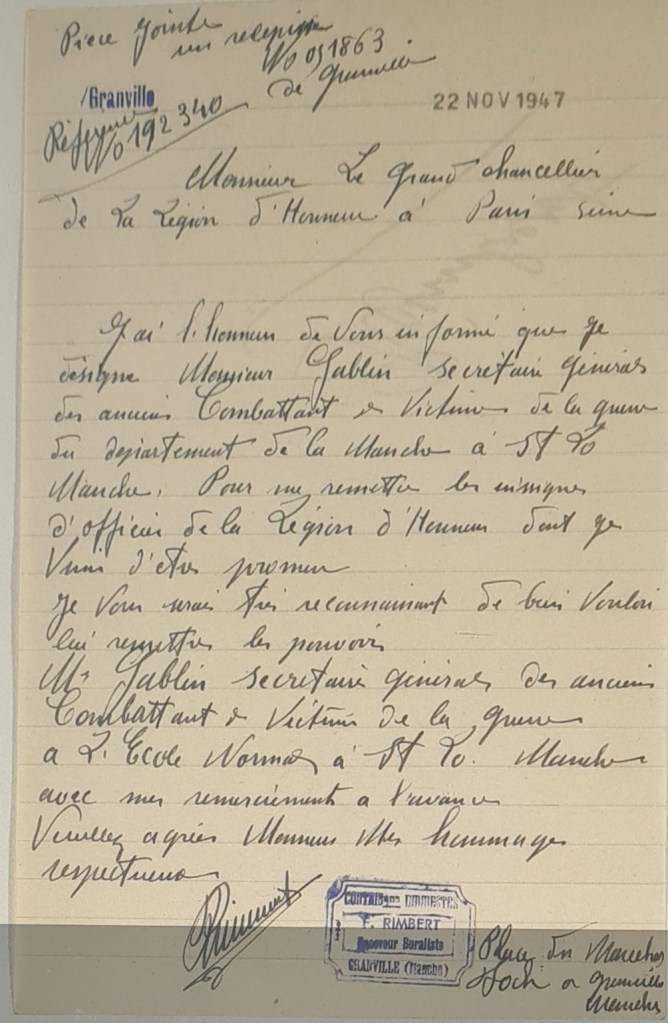 Pièce jointe
un recepissé
No 051863
de Granville
/Granville
Référence
No 192 340
22 NOV 1947
Monsieur Le Grand chancellier
de La Légion d'Honneur à Paris Seine
J'ai l'honneur de Vous informé que je
désigne Monsieur Gablin secrétaire générals
des anciens Combattant & Victimes de la guerre
du département de la Manche à St Lo
Manche. Pour me remettre les insignes
d'officier de la Légion d'Honneur dont je
Viens d'etre promeu
Je Vous serais très reconnaissant de bien Vouloir
lui remettre les pouvoirs
Mr Gablin secretaire générals des anciens
Combattant & Victimes de la guerre
a L'Ecole Normale à St Lo. Manche
avec mes remerciements a l'avance
Veuillez agréer Monsieur Mes hommages
respectueux
CONTRIBons INDIRECTES
F. RIMBERT
Receveur Buraliste
GRANVILLE (Manche)
Place du Marechal
Foch a Granville
Manche